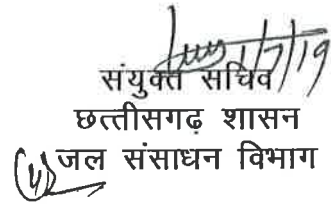 1/7/19
संयुक्त सचिव
छत्तीसगढ़ शासन
जल संसाधन विभाग